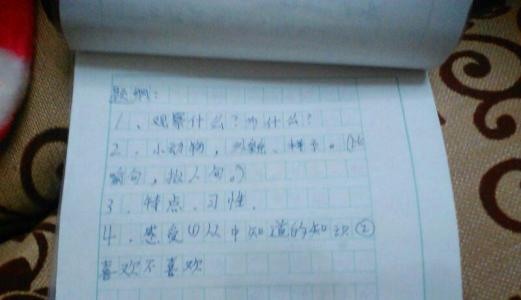 题纲：
1、观察什么？为什么？
2、小动物，外貌、样子。（比
喻句，拟人句。）
3、特点、习性.
4、感受①从中知道的知识②
喜欢不喜欢